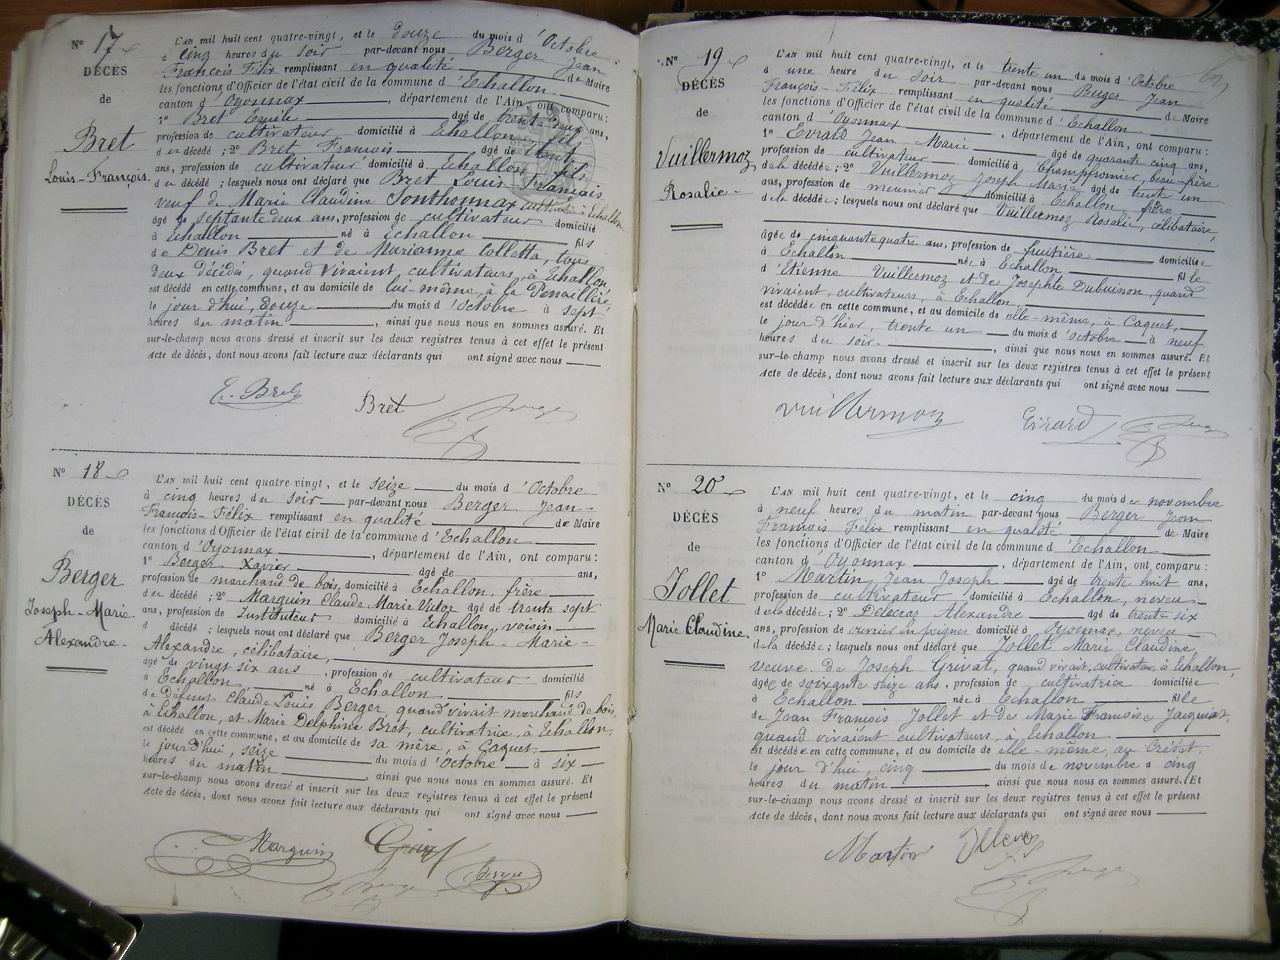 Nº 17
DÉCÈS
de
Bret
Louis-François.
L'AN mil huit cent quatre-vingt, et le douze du mois d'Octobre
à cinq heures du soir par-devant nous Berger Jean
François Félix remplissant en qualité de Maire
les fonctions d'Officier de l'état civil de la commune d'Echallon
canton d'Oyonnax, département de l'Ain, ont comparu:
1º Bret Emile âgé de trente cinq ans,
profession de cultivateur domicilié à Echallon fils
du décédé; 2º Bret François âgé de
ans, profession de cultivateur domicilié à Echallon fils
du décédé; lesquels nous ont déclaré que Bret Louis François
veuf de Marie Claudine Ponthonnax cultivatrice à Echallon
âgé de septante deux ans, profession de cultivateur domicilié
à Echallon né à Echallon fils
de Denis Bret et de Marianne Colletta, tous
deux décédés, quand vivaient cultivateurs, à Echallon,
est décédé en cette commune, et au domicile de lui même, à la Penaillée
le jour d'hui, douze du mois d'Octobre à sept
heures du matin, ainsi que nous nous en sommes assuré. Et
sur-le-champ nous avons dressé et inscrit sur les deux registres tenus à cet effet le présent
acte de décès, dont nous avons fait lecture aux déclarants qui ont signé avec nous
E. Bret
Bret
Nº 18
DÉCÈS
de
Berger
Joseph-Marie-
Alexandre.
L'AN mil huit cent quatre-vingt, et le seize du mois d'Octobre
à cinq heures du soir par-devant nous Berger Jean-
François-Félix remplissant en qualité de Maire
les fonctions d'Officier de l'état civil de la commune d'Echallon
canton d'Oyonnax, département de l'Ain, ont comparu:
1º Berger Xavier âgé de ans,
profession de marchand de bois, domicilié à Echallon, frère
du décédé; 2º Marquin Claude Marie Victor âgé de trente sept
ans, profession de Instituteur domicilié à Echallon, voisin
d décédé; lesquels nous ont déclaré que Berger Joseph-Marie-
Alexandre, célibataire,
âgé de vingt six ans, profession de cultivateur domicilié
à Echallon né à Echallon fils
de défunt Claude Louis Berger quand vivait marchand de bois,
à Echallon, et Marie Delphine Bret, cultivatrice, à Echallon,
est décédé en cette commune, et au domicile de sa mère, à Caquet
le jour d'hui, seize du mois d'Octobre à six
heures du matin ainsi que nous nous en sommes assuré. Et
sur-le-champ nous avons dressé et inscrit sur les deux registres tenus à cet effet le présent
acte de décès, dont nous avons fait lecture aux déclarants qui ont signé avec nous
Marquin
Nº 19
DÉCÈS
de
Vuillermoz
Rosalie
L'AN mil huit cent quatre-vingt, et le trente un du mois d'Octobre
à une heure du soir par-devant nous Berger Jean
François-Félix remplissant en qualité de Maire
les fonctions d'Officier de l'état civil de la commune d'Echallon
canton d'Oyonnax, département de l'Ain, ont comparu:
1º Evrard Jean Marie âgé de quarante cinq ans,
profession de cultivateur domicilié à Champfromier, beau-frère
de la décédée; 2º Vuillermoz Joseph Marie âgé de trente un
ans, profession de meunier domicilié à Echallon frère
de la décédée; lesquels nous ont déclaré que Vuillermoz Rosalie, célibataire,
âgée de cinquante quatre ans, profession de fruitière domiciliée
à Echallon née à Echallon fille
d'Etienne Vuillermoz et de Josephte Dubuisson, quand
vivaient, cultivateurs, à Echallon,
est décédée en cette commune, et au domicile de elle-même, à Caquet,
le jour d'hier, trente un du mois d'octobre à neuf
heures du soir, ainsi que nous nous en sommes assuré. Et
sur-le-champ nous avons dressé et inscrit sur les deux registres tenus à cet effet le présent
acte de décès, dont nous avons fait lecture aux déclarants qui ont signé avec nous
Vuillermoz
Evrard
Nº 20
DÉCÈS
de
Jollet
Marie Claudine.
L'AN mil huit cent quatre-vingt, et le cinq du mois de novembre
à neuf heures du matin par-devant nous Berger Jean
François Félix remplissant en qualité de Maire
les fonctions d'Officier de l'état civil de la commune d'Echallon
canton d'Oyonnax, département de l'Ain, ont comparu:
1º Martin Jean Joseph âgé de trente huit ans,
profession de cultivateur domicilié à Echallon, neveu
de la décédée; 2º Alexandre âgé de trente six
ans, profession de ouvrier en peignes domicilié à Oyonnax, neveu
de la décédée; lesquels nous ont déclaré que Jollet Marie Claudine
veuve de Joseph Grivat, quand vivait, cultivateur, à Echallon,
âgée de soixante seize ans, profession de cultivatrice domiciliée
à Echallon née à Echallon fille
de Jean François Jollet et de Marie Françoise Jacquinot,
quand vivaient cultivateurs, à Echallon
est décédée en cette commune, et au domicile de elle-même, au Crétet,
le jour d'hui, cinq du mois de novembre à cinq
heures du matin ainsi que nous nous en sommes assuré. Et
sur-le-champ nous avons dressé et inscrit sur les deux registres tenus à cet effet le présent
acte de décès, dont nous avons fait lecture aux déclarants qui ont signé avec nous
Martin